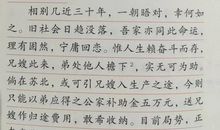 相别几近三十年，一朝晤对，幸何如
之。旧社会日趋没落，吾家亦同此命运，
理有固然，宁庸回恋。惟人生赖奋斗而存，
兄嫂此来，弟处他人檐下²，实无可为助。
倘在苏北，或可引兄嫂入生产之途，今则
只能以弟应得之公家补助金五万元，送兄
嫂作归途费用，敢希收纳。目前局势，正